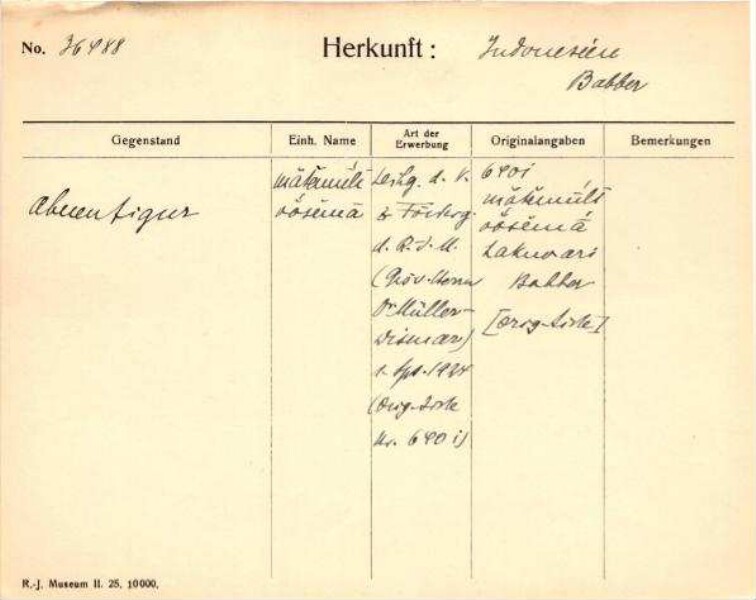 No. 36488 Herkunft: Indonesien
Babber
Gegenstand Einh. Name Art der Erwerbung Originalangaben Bemerkungen
Ahnenfigur
mătĕmúli
öösēmā
d. V.
z. Förderg.
d. R.-J.-M.
(Dr. Müller-
Wismar)
1. Spt. 1924
(Orig.-Liste
Nr. 640 i)
640i
mătĕmúli
öösēmā
Lakuwari
Babber
[Orig.-Liste]
R.-J. Museum II. 25. 10000.